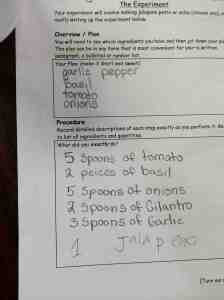 The Experiment
Your experiment will involve making jalapeno pesto or salsa (choose one),
Overview / Plan
You will need to see which ingredients you have and then jot down your
The plan can be in any form that is most convenient for you: a written
paragraph, a bulleted or number list.
Your Plan (make it short and sweet)
garlic pepper
basil
tomato
onions
Procedure
Record detailed descriptions of each step exactly as you perform it. Be
to list of ingredients and quantities.
What did you exactly do?
5 spoons of tomato
2 peices of basil
5 spoons of onions
2 spoons of Cilantro
3 Spoons of Garlic
1 Jalapeno